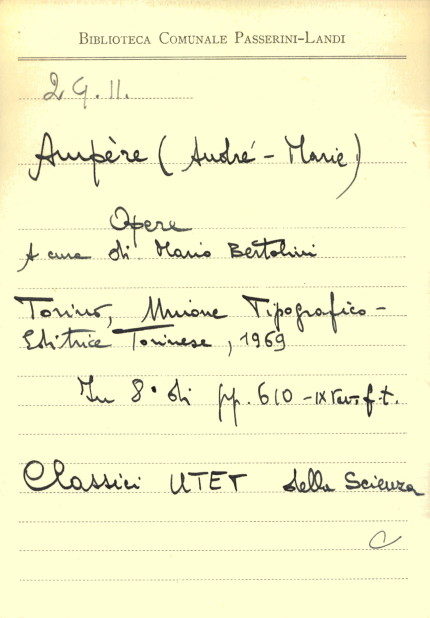 BIBLIOTECA COMUNALE PASSERINI-LANDI
2 G. II.
Ampère (André-Marie)
Opere
A cura di Mario Bertolini
Torino, Unione Tipografico-
Editrice Torinese, 1969
In 8° di pp. 610 - IX tav. f. t.
Classici UTET della Scienza
C